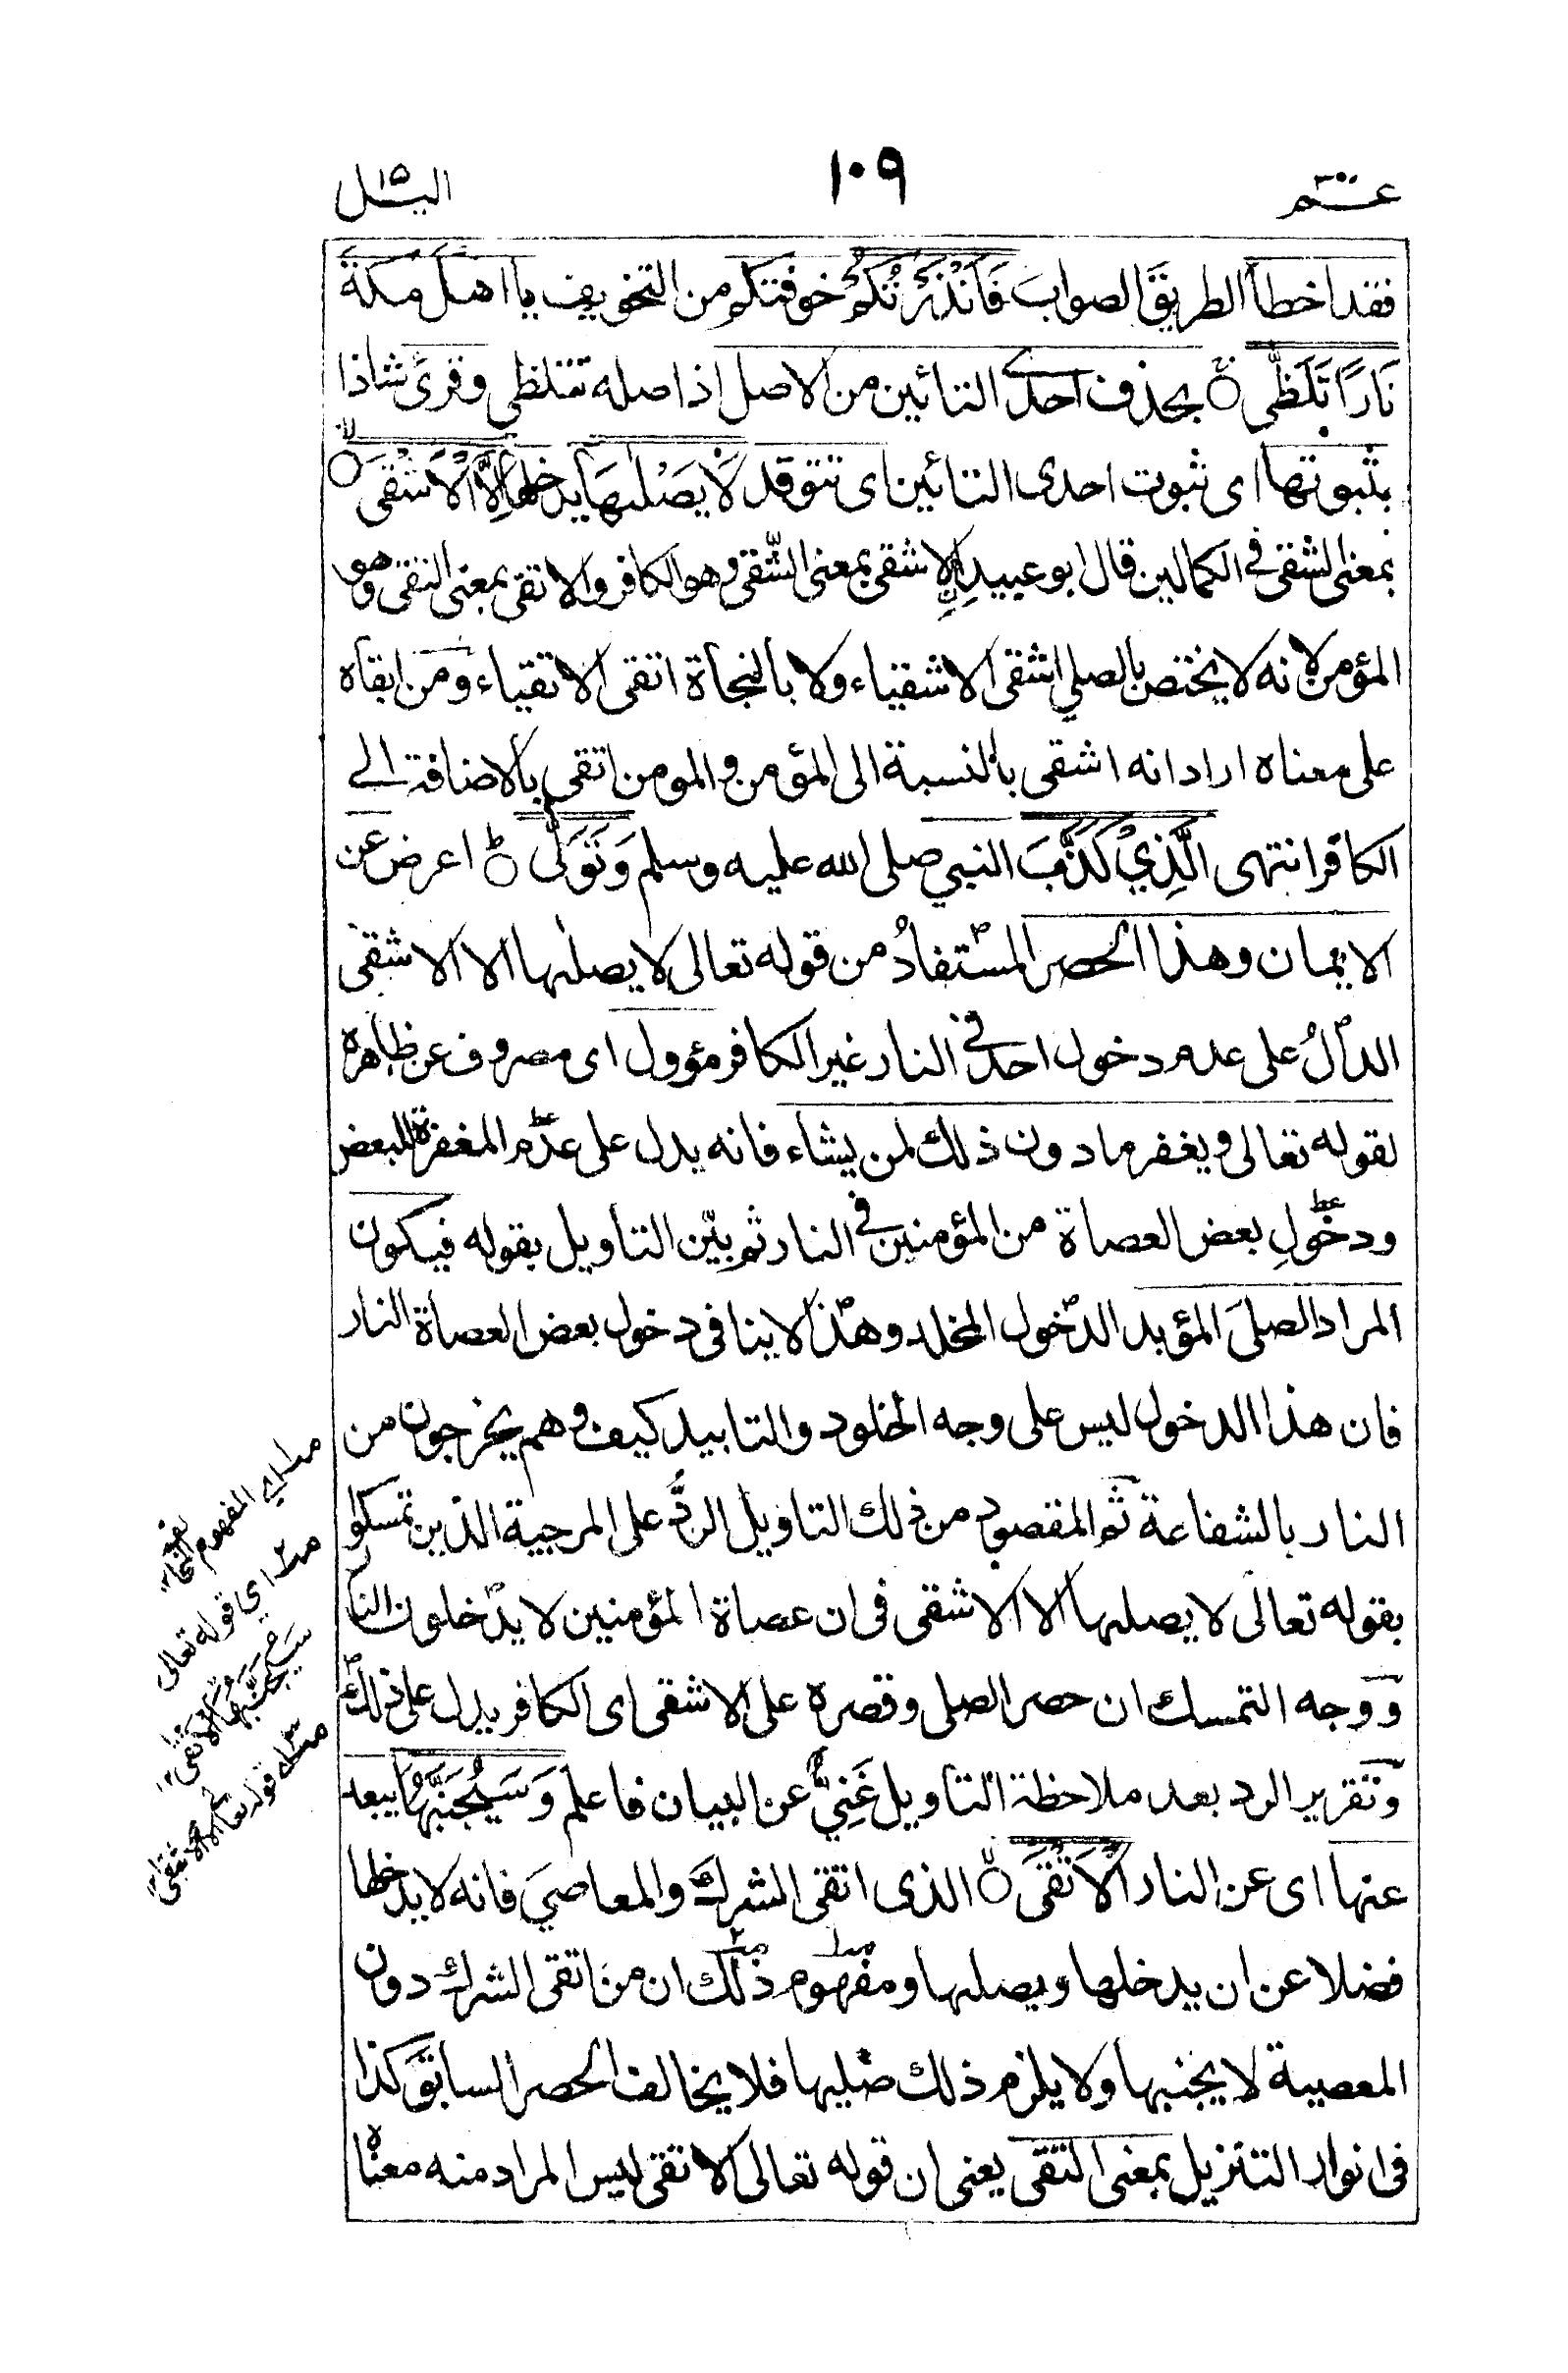 عـــم
١٠٩
اليــل
فقد اخطأ الطريقَ الصوابَ فَاَنْذَرْتُكُمْ خوفتكم من التخويف يا اهلَ مكةَ
نَارًا تَلَظّٰى بحذف احدى التائين من الاصل اذ اصله تتلظى وقرئَ شاذا
بثبوتها اى ثبوت احدى التائين اى تتوقد لَا يَصْلٰىهَا يدخلها اِلَّا الْاَشْقَى
بمعنى الشقى فى الكمالين قال ابو عبيد الاشقى بمعنى الشقى وهو الكافر والاتقى بمعنى التقى وهو
المؤمن لانه لا يختص بالصلي اشقى الاشقياء ولا بالنجاة اتقى الاتقياء ومن ابقاه
على معناه اراد انه اشقى بالنسبة الى المؤمن والمومن اتقى بالاضافة الى
الكافر انتهى الَّذِيْ كَذَّبَ النبي صلى الله عليه وسلم وَتَوَلّٰى اعرض عن
الايمان وهذا الحصر المستفادُ من قوله تعالى لا يصلٰىها الا الاشقى
الدالُ على عدم دخول احد فى النار غير الكافر مؤول اى مصروف عن ظاهره
لقوله تعالى ويغفر ما دون ذلك لمن يشاء فانه يدل على عدم المغفرة للبعض
ودخولِ بعض العصاة من المؤمنين فى النار ثم بيّن التاويل بقوله فيكون
المراد الصلىَ المؤبد الدخول المخلد وهذا لا ينافى دخول بعض العصاة النار
فان هذا الدخول ليس على وجه الخلود والتابيد كيف وهم يخرجون من
النار بالشفاعة ثم المقصود من ذلك التاويل الردُّ على المرجية الذين تمسكوا
بقوله تعالى لا يصلىها الا الاشقى فى ان عصاة المؤمنين لا يدخلون النار
ووجه التمسك ان حصر الصلى وقصره على الاشقى اى الكافر يدل على ذلك
وتقرير الرد بعد ملاحظة التاويل غَنِيٌّ عن البيان فاعلم وَسَيُجَنَّبُهَا يبعد
عنها اى عن النار الْاَتْقَى الذى اتقى الشركَ والمعاصيَ فانه لا يدخلها
فضلا عن ان يدخلها ويصلىها ومفهوم ذلك ان من اتقى الشرك دون
المعصية لا يجنبها ولا يلزم ذلك صليها فلا يخالف الحصر السابق كذا
فى انوار التنزيل بمعنى التقى يعنى ان قوله تعالى الاتقى ليس المراد منه معناه
اي المفهوم
اي قوله تعالى
سيجنبها الاتقى
قوله تعالى الا الاشقى